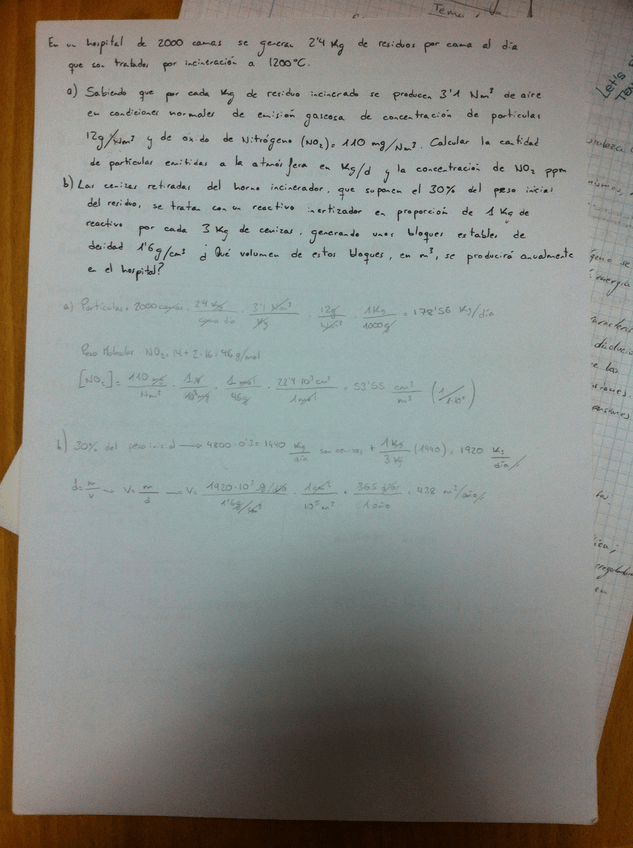 Tema
En un hospital de 2000 camas se generan 2'4 Kg de residuos por cama al día
que son tratados por incineración a 1200°C.
a) Sabiendo que por cada Kg de residuo incinerado se producen 3'1 Nm³ de aire
en condiciones normales de emisión gaseosa de concentración de partículas
12g/Nm³ y de óxido de Nitrógeno (NO₂) = 110 mg/Nm³. Calcular la cantidad
de partículas emitidas a la atmósfera en Kg/d y la concentración de NO₂ ppm
b) Las cenizas retiradas del horno incinerador, que suponen el 30% del peso inicial
del residuo, se tratan con un reactivo inertizador en proporción de 1 Kg de
reactivo por cada 3 Kg de cenizas, generando unos bloques estables de
desidad 1'6 g/cm³ ¿Qué volumen de estos bloques, en m³, se producirá anualmente
en el hospital?
a) Partículas = 2000 camas · 2'4 Kg / cama día · 3'1 Nm³ / Kg · 12g / Nm³ · 1 Kg / 1000g = 178'56 Kg/día
Peso Molecular NO₂ = 14 + 2 · 16 = 46 g/mol
[NO₂] = 110 mg / Nm³ · 1 g / 10³ mg · 1 mol / 46g · 22'4 · 10³ cm³ / 1 mol = 53'55 cm³ / m³
b) 30% del peso inicial → 4800 · 0'3 = 1440 Kg / día son cenizas + 1 Kg / 3 Kg (1440) = 1920 Kg / día
d = m / v → V = m / d → V = 1920 · 10³ g / día / 1'6 g/cm³ · 1 m³ / 10⁶ m³ · 365 día / 1 año = 438 m³/año
Let's